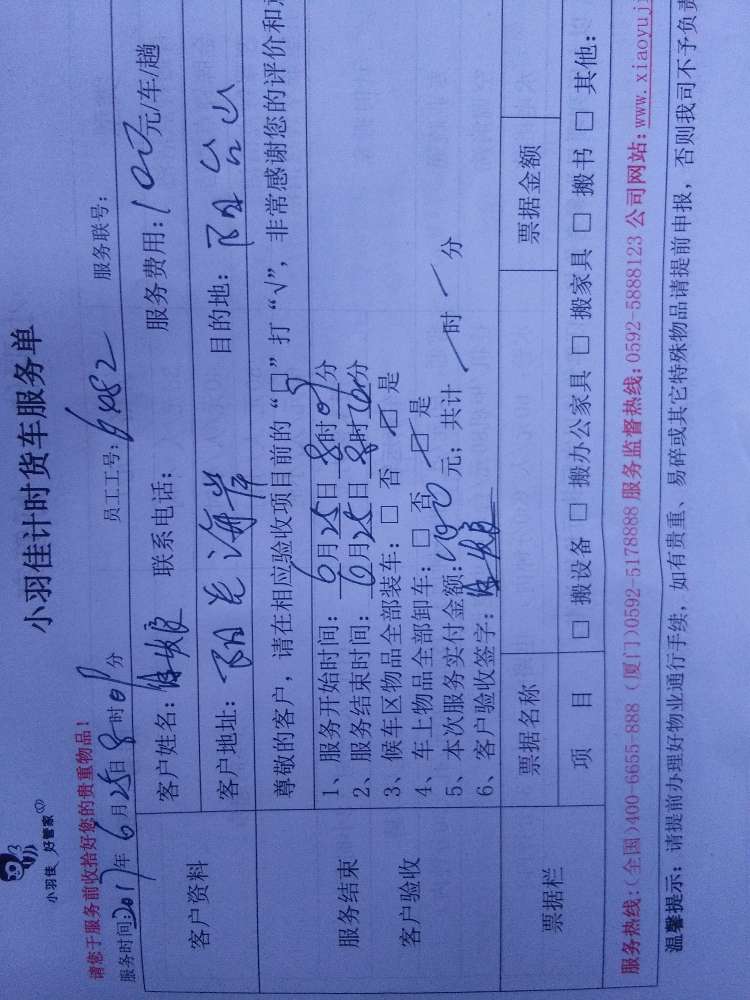 小羽佳计时货车服务单
小羽佳 好管家
请您于服务前收拾好您的贵重物品！
服务时间:2017年6月25日8时01分 员工工号:6482 服务联号:
客户资料
客户姓名: 联系电话: 服务费用:100元/车/趟
客户地址:阳光海岸 目的地:阳台山
尊敬的客户，请在相应验收项目前的“□”打“√”，非常感谢您的评价和
服务结束
客户验收
1、服务开始时间:6月25日8时01分
2、服务结束时间:6月25日8时分
3、候车区物品全部装车:□ 否 ☑ 是
4、车上物品全部卸车:□ 否 ☑ 是
5、本次服务实付金额:100元; 共计 / 时 / 分
6、客户验收签字:
票据栏
票据名称 票据金额
项 目 □ 搬设备 □ 搬办公家具 □ 搬家具 □ 搬书 □ 其他:
服务热线:(全国)400-6655-888 (厦门)0592-5178888 服务监督热线:0592-5888123 公司网站:www.xiaoyuj
温馨提示:请提前办理好物业通行手续，如有贵重、易碎或其它特殊物品请提前申报，否则我司不予负责